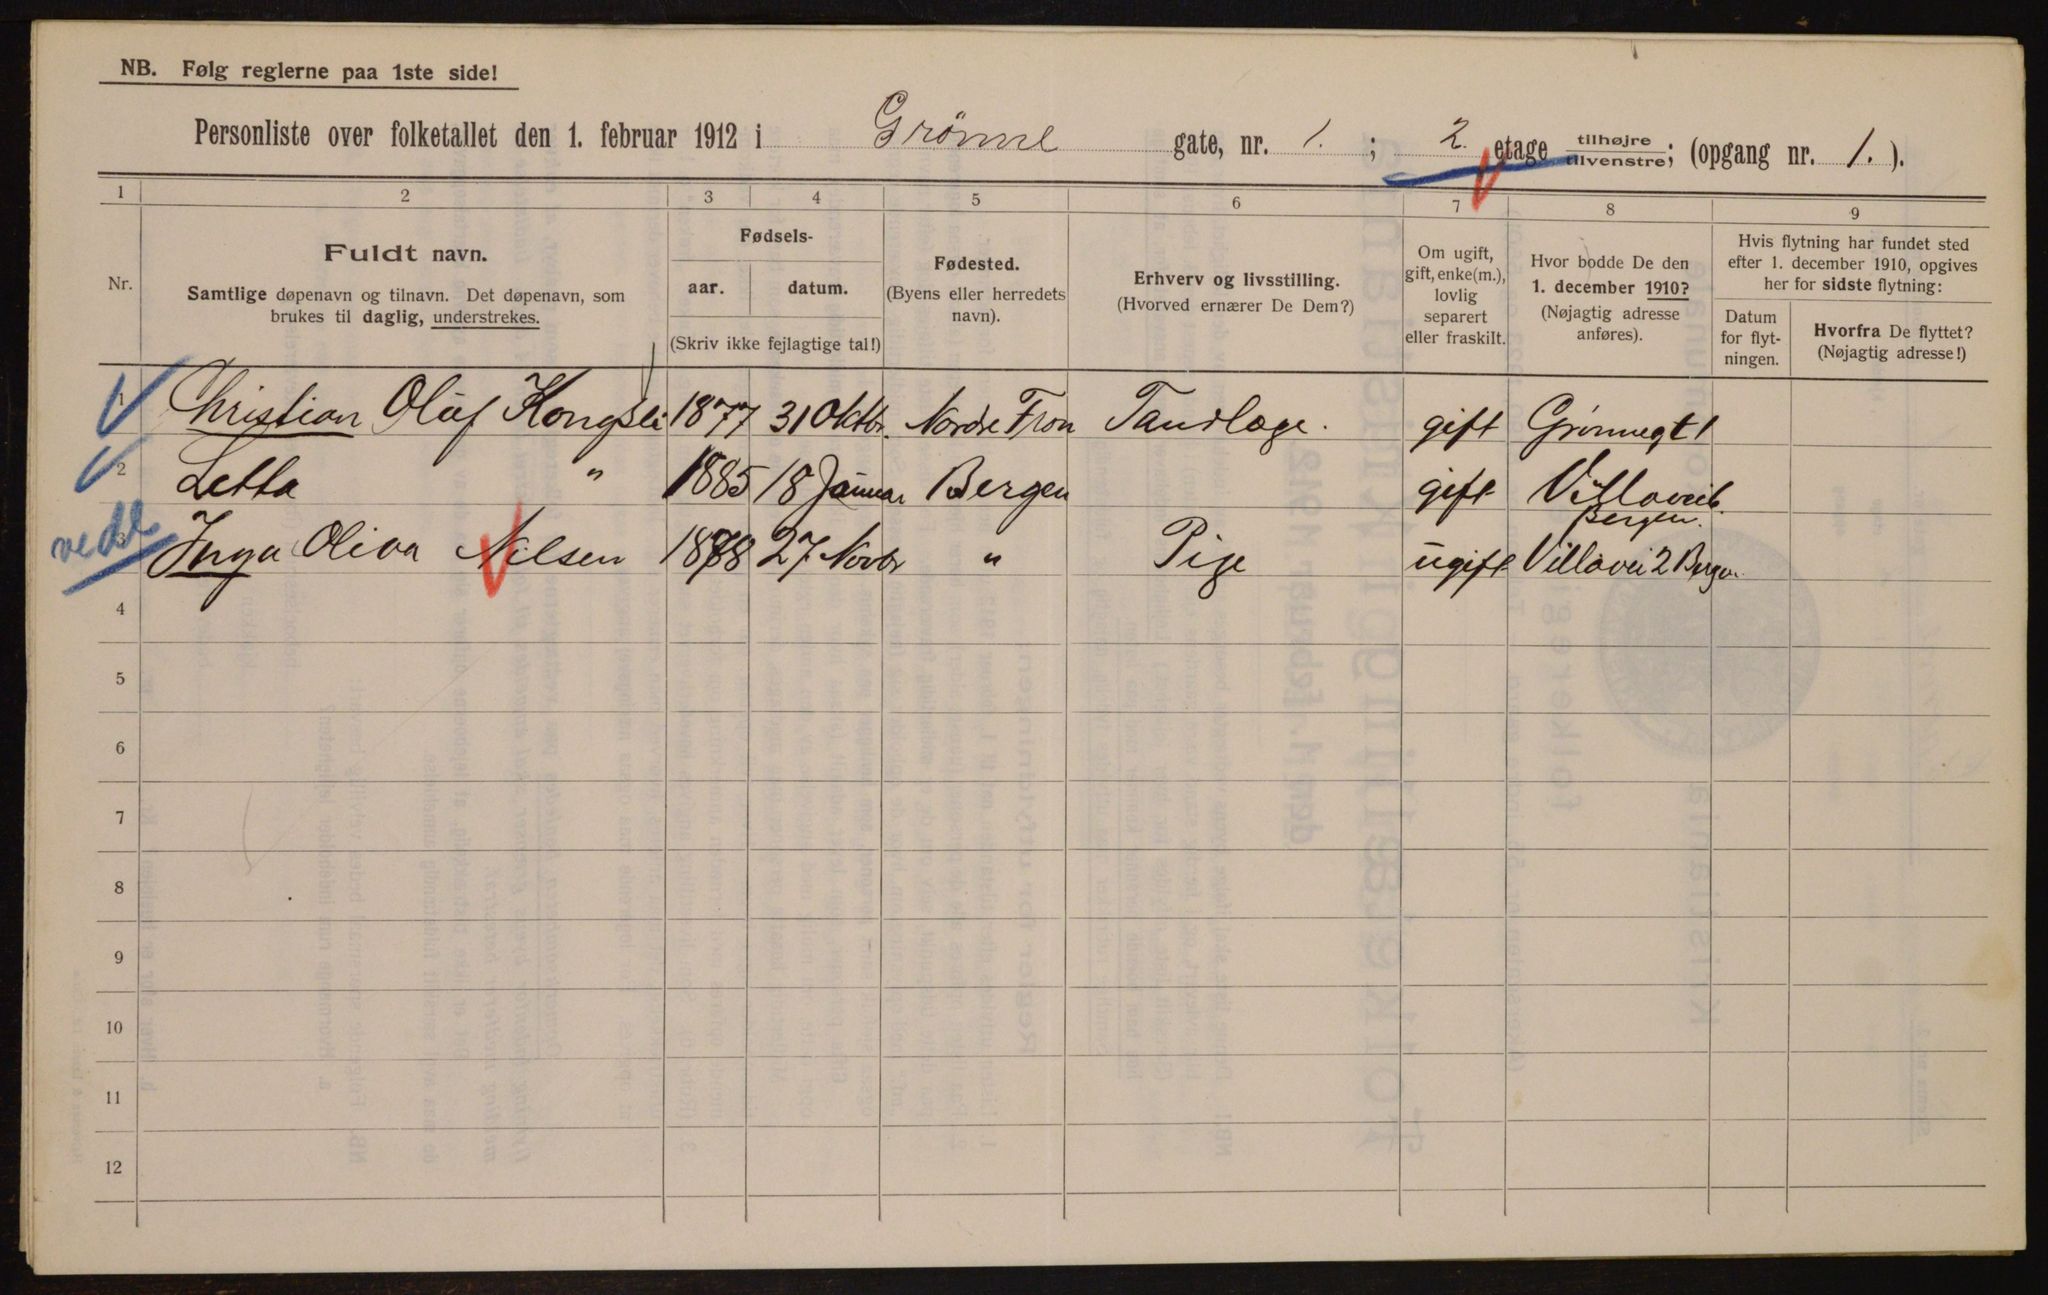 NB. Følg reglerne paa 1ste side!
Personliste over folketallet den 1. februar 1912 i Grönne gate, nr. 1. ; 2. etage tilhøjre tilvenstre; (opgang nr. 1. ).
1 2 3 4 5 6 7 8 9
Nr.
Fuldt navn.
Samtlige døpenavn og tilnavn. Det døpenavn, som
brukes til daglig, understrekes.
Fødsels-
aar. datum.
(Skriv ikke fejlagtige tal!)
Fødested.
(Byens eller herredets
navn).
Erhverv og livsstilling.
(Hvorved ernærer De Dem?)
Om ugift,
gift, enke(m.),
lovlig
separert
eller fraskilt.
Hvor bodde De den
1. december 1910?
(Nøjagtig adresse
anføres).
Hvis flytning har fundet sted
efter 1. december 1910, opgives
her for sidste flytning:
Datum
for flyt-
ningen.
Hvorfra De flyttet?
(Nøjagtig adresse!)
1 Christian Olaf Kongsli 1877 31 Oktbr. Nordre Fron Tandlæge. gift Grønnegt 1
2 Letta " 1885 18 Januar Bergen gift
Bergen.
3 Inga Oliva Nilsen 1878 27 Novbr " Pige ugift Villavei 2 Bergen.
4
5
6
7
8
9
10
11
12